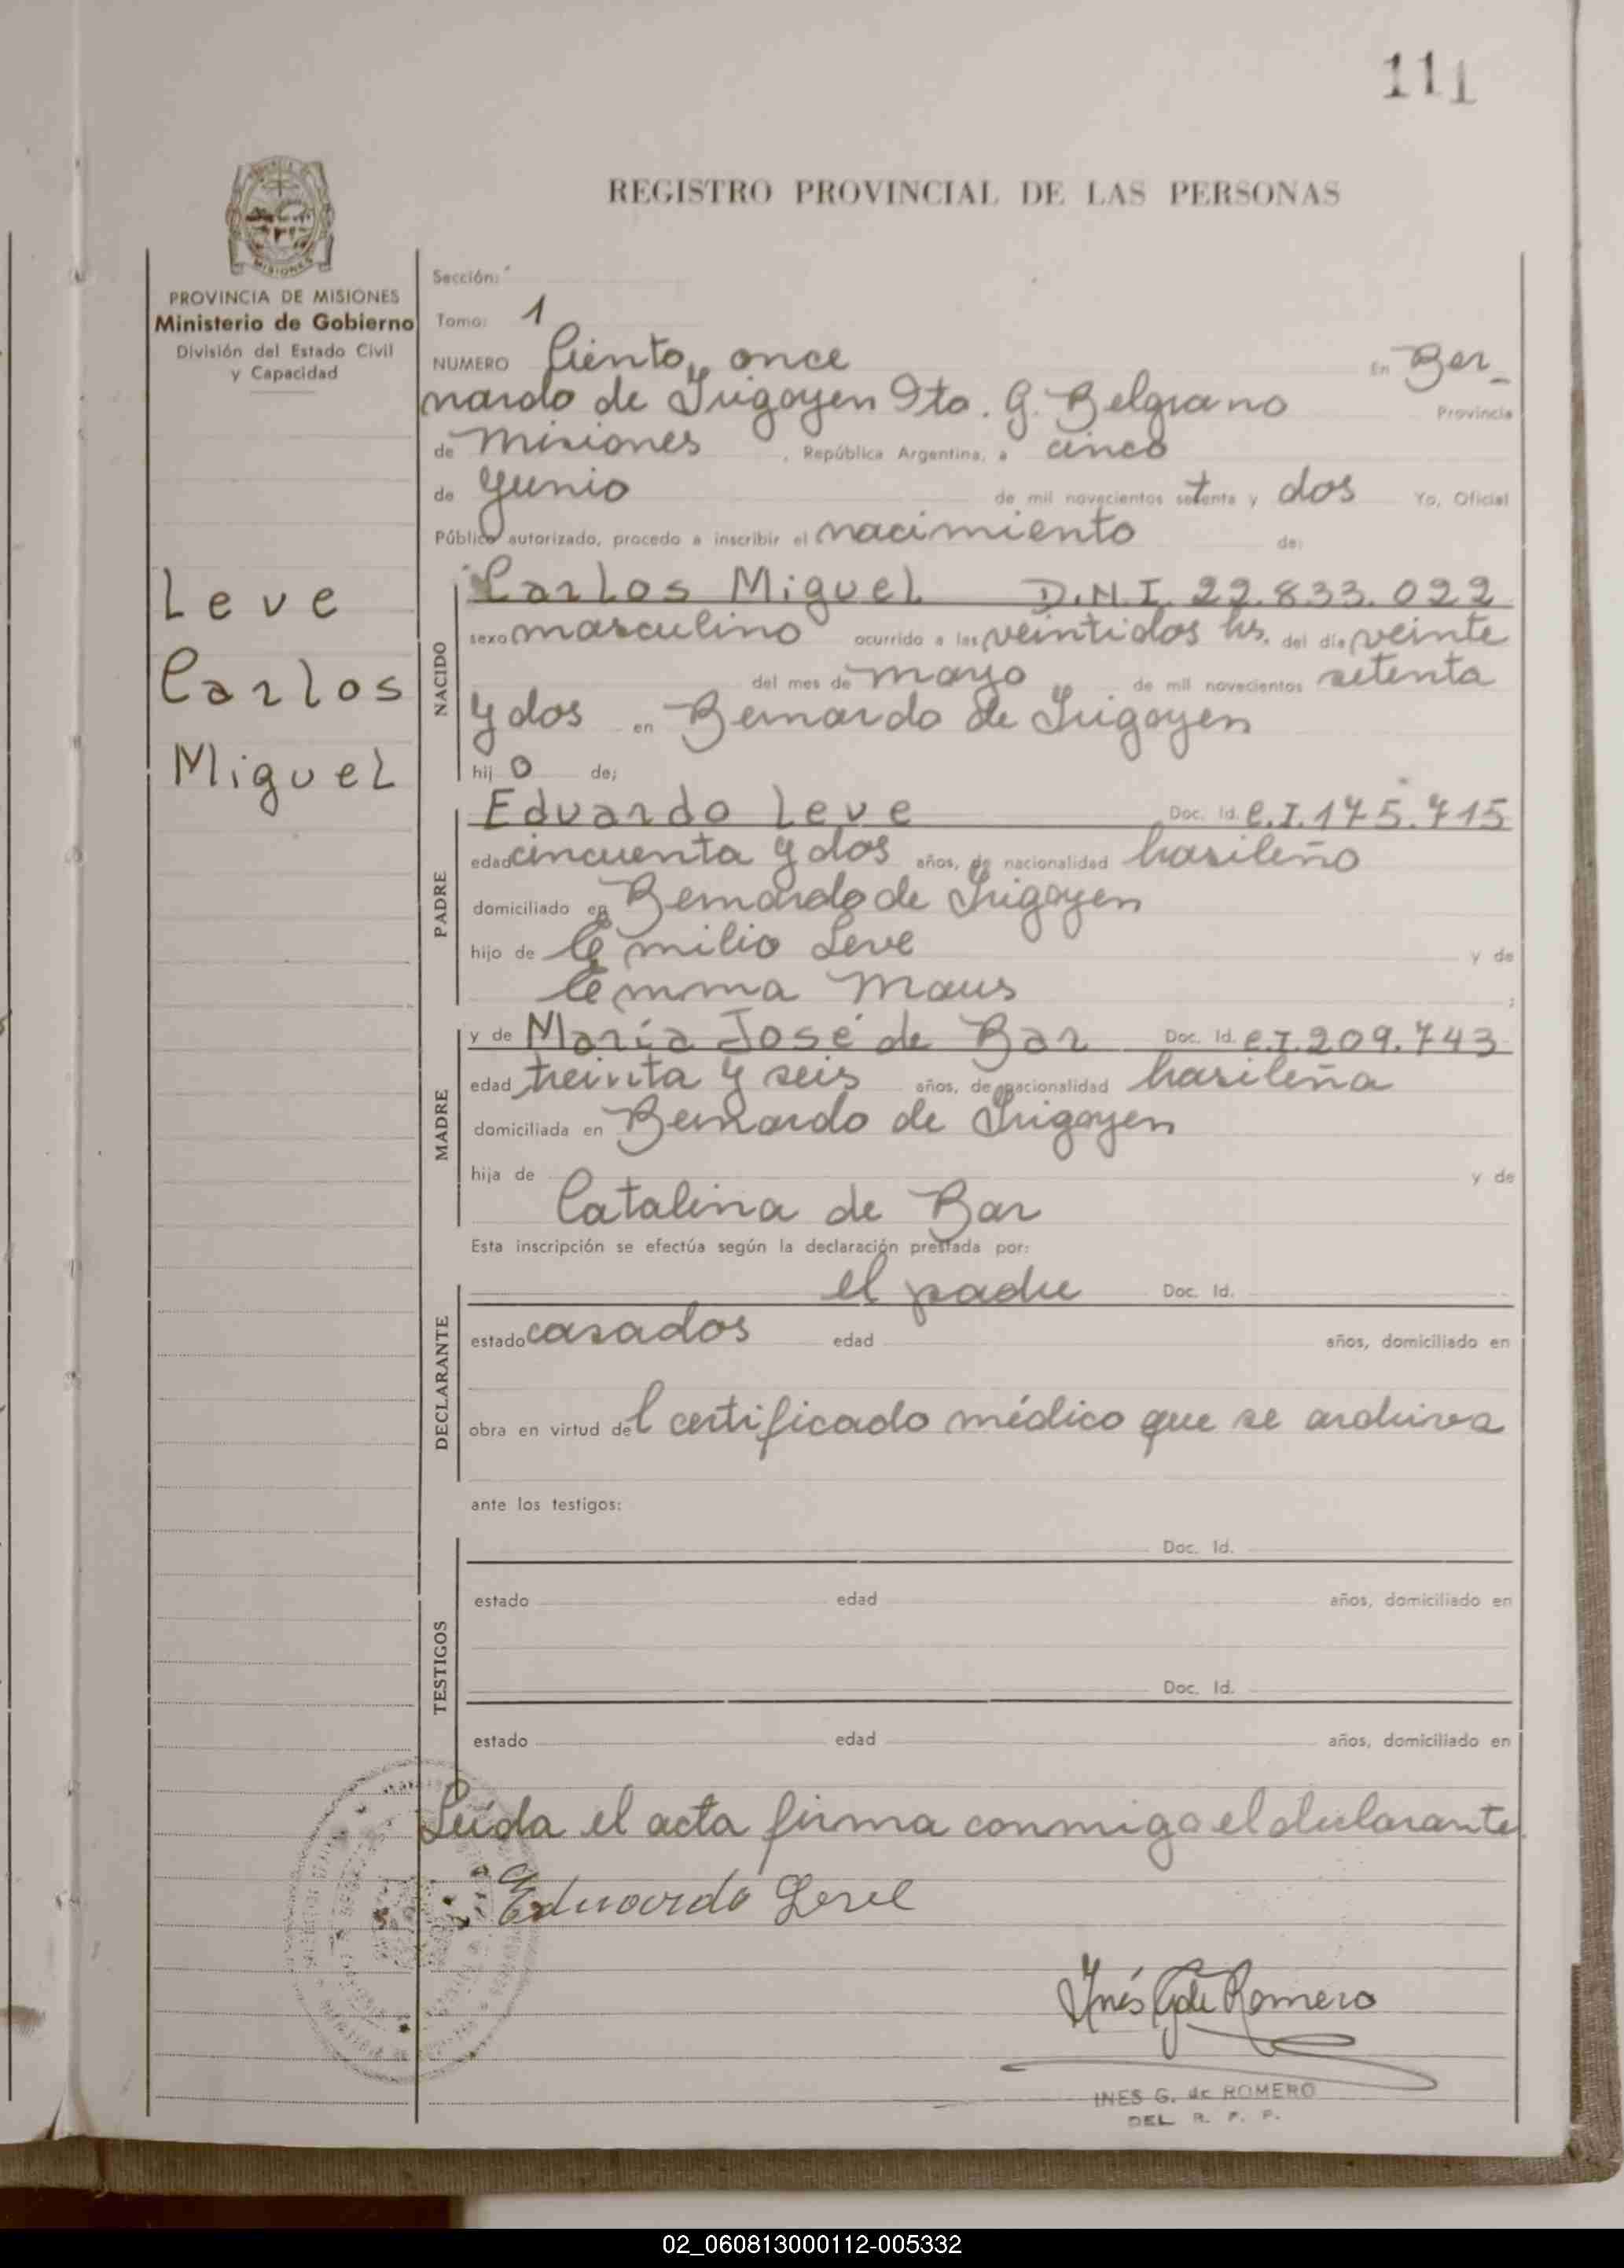 111
REGISTRO PROVINCIAL DE LAS PERSONAS
MISIONES
PROVINCIA DE MISIONES
Ministerio de Gobierno
División del Estado Civil
y Capacidad
Leve
Carlos
Miguel
Sección:
Tomo: 1
NUMERO Ciento once En Ber-
nardo de Irigoyen Dto. G. Belgrano Provincia
de Misiones , República Argentina, a cinco
de Junio de mil novecientos setenta y dos Yo, Oficial
Público autorizado, procedo a inscribir el nacimiento de:
NACIDO
Carlos Miguel D.N.I. 22.833.022
sexo masculino ocurrido a las veintidos hs. del día veinte
del mes de mayo de mil novecientos setenta
y dos en Bernardo de Irigoyen
hij o de;
PADRE
Eduardo Leve Doc. Id. C.I. 175.715
edad cincuenta y dos años, de nacionalidad brasileño
domiciliado en Bernardo de Irigoyen
hijo de Emilio Leve y de
Emma Maus ;
MADRE
y de María José de Bar Doc. Id. C.I. 209.743
edad treinta y seis años, de nacionalidad brasileña
domiciliada en Bernardo de Irigoyen
hija de y de
Catalina de Bar
Esta inscripción se efectúa según la declaración prestada por:
DECLARANTE
el padre Doc. Id.
estado casados edad años, domiciliado en
obra en virtud del certificado médico que se archiva
ante los testigos:
TESTIGOS
Doc. Id.
estado edad años, domiciliado en
Doc. Id.
estado edad años, domiciliado en
Leída el acta firma conmigo el declarante.
Eduardo Leve
Inés G. de Romero
INES G. de ROMERO
DEL R. P. P.
02_060813000112-005332